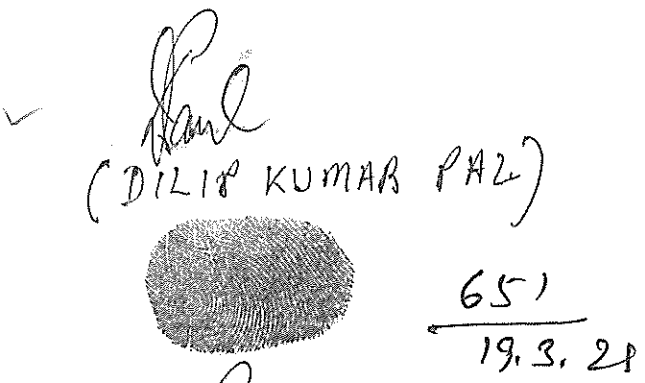 (DILIP KUMAR PAL)
651
19.3.21